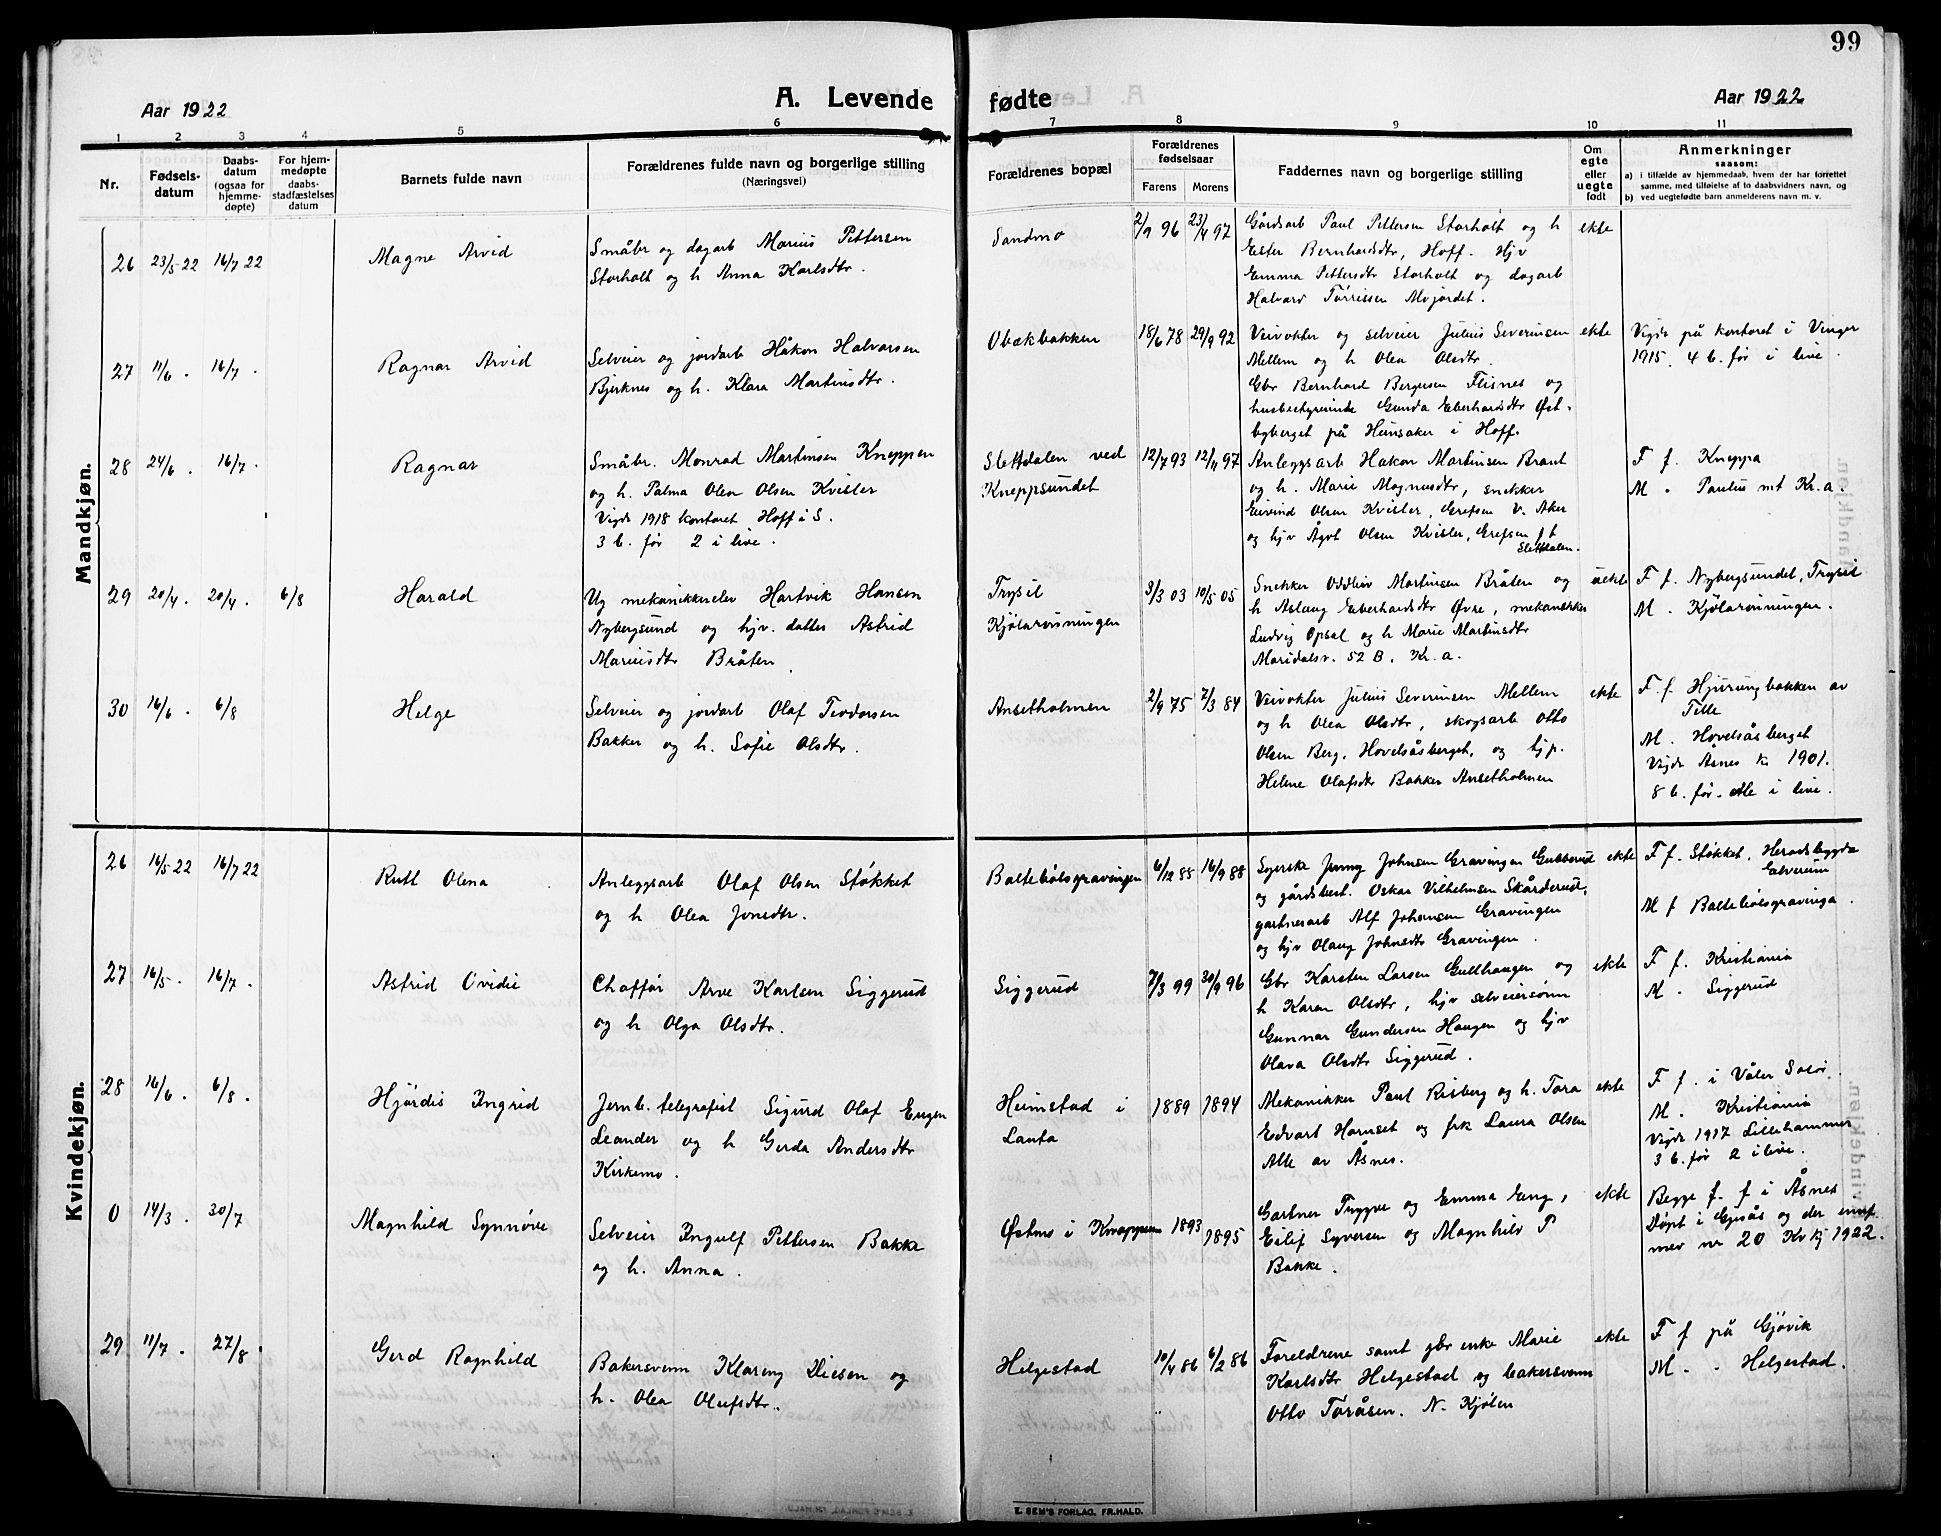 99
Aar 1922
A. Levende
fødte
Aar 1922
1 2 3 4 5 6 7 8 9 10 11
Nr.
Fødsels-
datum
Daabs-
datum
(ogsaa for
hjemme-
døpte)
For hjem-
medøpte
daabs-
stadfæstelses
datum
Barnets fulde navn
Forældrenes fulde navn og borgerlige stilling
(Næringsvei)
Forældrenes bopæl
Forældrenes
fødselsaar
Farens Morens
Faddernes navn og borgerlige stilling
Om
egte
eller
uegte
født
Anmerkninger
saasom:
a) i tilfælde av hjemmedaab, hvem der har forrettet
samme, med tilføielse af to daabsvidners navn, og
b) ved uegtefødte barn anmelderens navn m. v.
Mandkjøn.
26 23/5 22 16/7 22
Magne Arvid
Småbr og dagarb Marius Pettersen
Storholt og h Anna Karlsdtr.
Sandmo
2/9 96 23/4 97
Gårdsarb Paul Pettersen Storholt og h
Ester Bernhardsdtr, Hoff. Hjv
Emma Pettersdtr Storholt og dagarb
Halvard Tørrissen Mojordet.
ekte
27 11/6 . 16/7 .
Ragnar Arvid
Selveier og jordarb Håkon Halvorsen
Bjerknes og h. Klara Martinsdtr.
Obækbakken
18/6 78 29/9 92
Veivokter og selveier Julius Severinsen
Mellem og h Olea Olsdtr.
Gbr Bernhard Bergersen Flisnes og
husbestyrerinde Gunda Eberhardsdtr Øst-
byberget på Heinsaker i Hoff.
ekte
Vigde på kontoret i Vinger
1915. 4 b. før i live.
28 24/6 . 16/7 .
Ragnar
Småbr. Monrad Martinsen Kneppen
og h. Palma Olea Olsen Kvisler
Vigde 1918 kontoret Hoff i S.
3 b. før 2 i live.
Slettdalen ved
Kneppsundet
12/7 93 12/11 97
Anleggsarb Hakon Martinsen Braut
og h. Marie Magnusdtr, snekker
Eivind Olsen Kvisler, Grefsen V. Aker
og hjv Ågot Olsen Kvisler, Grefsen f t
Slettdalen.
F f. Kneppa
M . Paulus mt Kr.a.
29 20/4 . 20/4 . 6/8
Harald
Ug mekanikkerelev Hartvik Hansen
Nybergsund og hjv. datter Astrid
Mariusdtr Bråten
Trysil
Kjølarønningen
3/3 03 10/5 05
Snekker Oddleiv Martinsen Bråten og
h Aslaug Eberhardsdtr Øvre, mekanikker
Ludvig Opsal og h Marie Martinsdtr
Maridalsv. 52 B. Kr.a.
uekte
F f. Nybergsundet, Trysil
M. Kjølarønningen.
30 16/6 . 6/8
Helge
Selveier og jordarb Olaf Teodorsen
Bakker og h. Sofie Olsdtr.
Ansetholmen
2/9 75 7/3 84
Veivokter Julius Severinsen Mellem
og h Olea Olsdtr, skogsarb Otto
Olsen Berg, Hovelsåsberget, og hjp.
Helene Olafsdtr Bakker Ansetholmen
ekte
F. f. Hjurungbakken av
Telle
M. Hovelsåsberget
Vigde Åsnes k 1901.
8 b. før. alle i live.
Kvindekjøn.
26 16/5 22 16/7 22
Rutt Olena
Anleggsarb Olaf Olsen Støkket
og h Olea Jonsdtr.
Baltebølsgravingen
6/12 88 16/9 88
Syerske Jenny Johnsen Gravingen Gubberud
og gårdsbest. Oskar Vilhelmsen Skårderud,
gartnerarb Alf Johansen Gravingen
og hjv Olaug Johnsdtr Gravingen.
ekte
F f. Støkket, Heradsbygda
Elverum
M f Baltebølsgravinga.
27 16/5 . 16/7 .
Astrid Ovidie
Chaffør Arve Karlsen Siggerud
og h Olga Olsdtr.
Siggerud
7/3 99 30/9 96
Gbr Karsten Larsen Gullhaugen og
h Karen Olsdtr, hjv selveiersønn
Gunnar Gundersen Haugen og hjv
Olava Olsdtr Siggerud.
ekte
F f. Kristiania
M . Siggerud
28 16/6 . 6/8 .
Hjørdis Ingrid
Jernb. telegrafist Sigurd Olaf Eugen
Leander og h Gerda Andersdtr
Kirkemo.
Heimstad i
Lauta
1889 1894
Mekanikker Paul Risberg og h. Tora
Edvart Harnset og frk Laura Olsen
Alle av Åsnes.
ekte
F f. i Våler Solør.
M. Kristiania
Vigde 1917 Lillehammer
3 b. før 2 i live.
0 14/3 . 30/7
Magnhild Synnøve
Selveier Ingulf Pettersen Bakke
og h. Anna.
Østmo i Kneppen
1893 1895
Gartner Trygve og Emma Eng,
Eilif Syversen og Magnhild P
Bakke.
ekte
Begge f. f i Åsnes
Døpt i Gjesås og der innf
med nr 20 Kvkj 1922.
29 11/7 . 27/8 .
Gerd Ragnhild
Bakersvenn Klareng Diesen og
h. Olea Olufsdtr.
Helgestad
10/4 86 6/2 86
Foreldrene samt gbr enke Marie
Karlsdtr Helgestad og bakersvenn
Otto Toråsen. N. Kjølen
ekte
F f på Gjøvik
M . . Helgestad.
E. SEM'S FORLAG, FR.HALD.